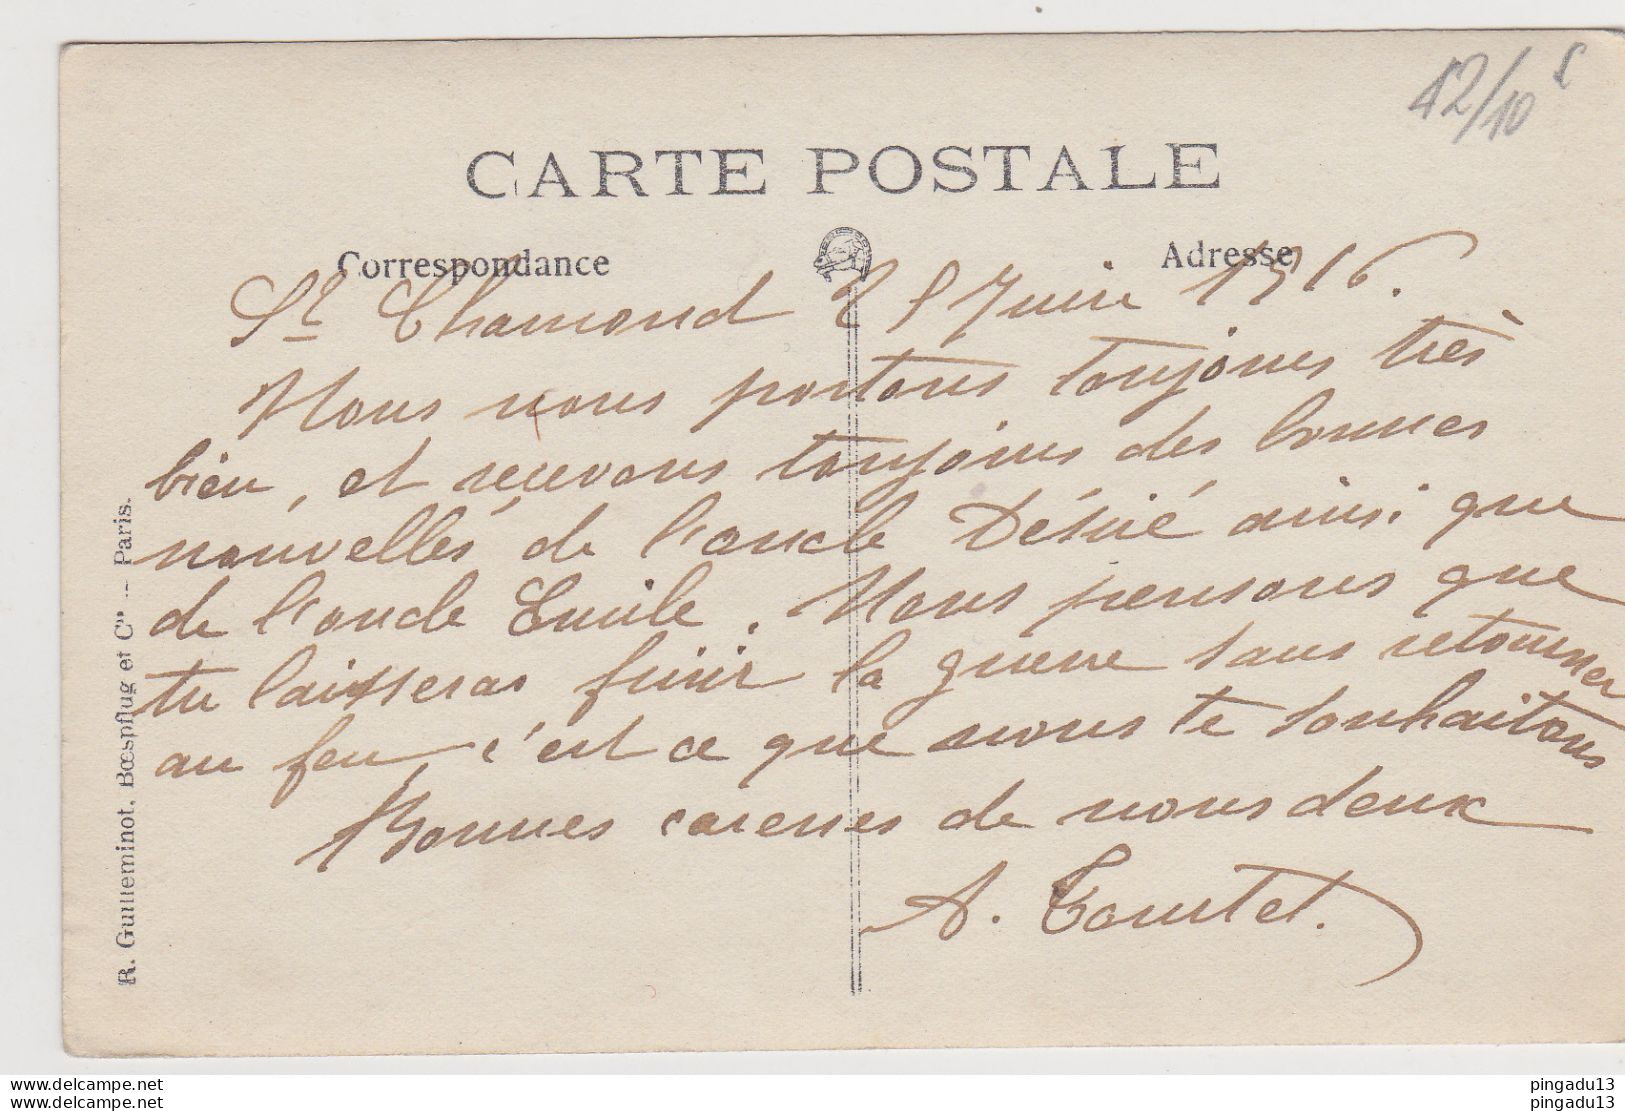 42/10
CARTE POSTALE
Correspondance
Adresse
St Chamond 25 Juin 1916.
Nous nous portons toujours très
bien, et recevons toujours des bonnes
nouvelles de l'oncle Désiré ainsi que
de l'oncle Emile. Nous pensons que
tu laisseras finir la guerre sans retourner
au feu, c'est ce que nous te souhaitons
Bonnes caresses de nous deux
A. Tourtet.
R. Guilleminot, Bœspflug et Cie -- Paris.
www.delcampe.net
www.delcampe.net
pingadu13
pingadu13